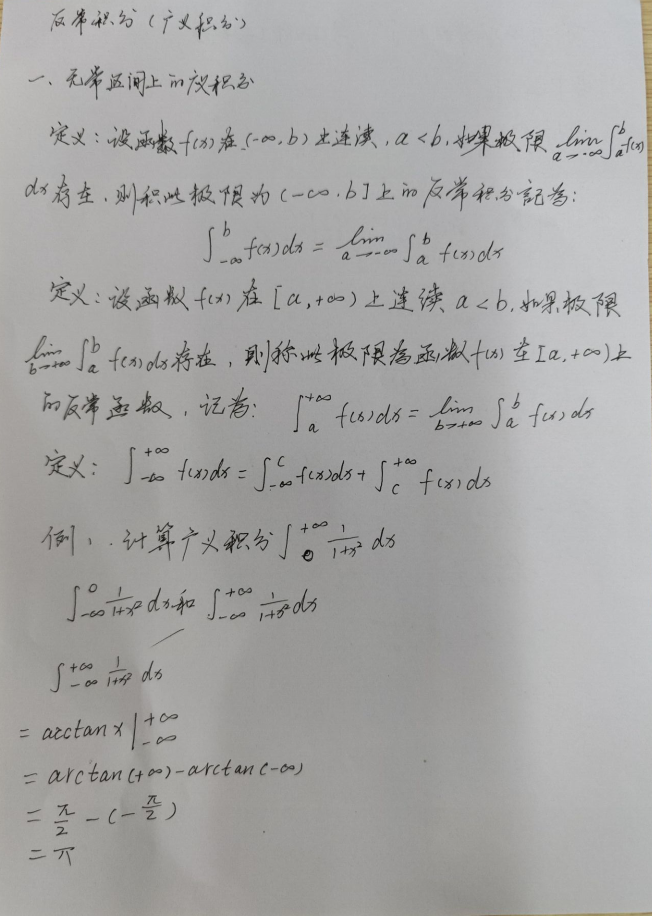 反常积分(广义积分)
一、无常区间上的广义积分
定义:设函数f(x)在(-∞,b)上连续,a<b,如果极限 lim_{a→-∞} ∫_a^b f(x)
dx存在,则积此极限为(-∞,b]上的反常积分記为:
∫_{-∞}^b f(x)dx = lim_{a→-∞} ∫_a^b f(x)dx
定义:设函数f(x)在[a,+∞)上连续a<b,如果极限
lim_{b→+∞} ∫_a^b f(x)dx存在,则称此极限为函数f(x)在[a,+∞)上
的反常函数,记为: ∫_a^{+∞} f(x)dx = lim_{b→+∞} ∫_a^b f(x)dx
定义: ∫_{-∞}^{+∞} f(x)dx = ∫_{-∞}^c f(x)dx + ∫_c^{+∞} f(x)dx
例1.计算广义积分 ∫_0^{+∞} 1/(1+x²) dx
∫_{-∞}^0 1/(1+x²) dx和 ∫_{-∞}^{+∞} 1/(1+x²) dx
∫_{-∞}^{+∞} 1/(1+x²) dx
= arctan x |_{-∞}^{+∞}
= arctan(+∞)-arctan(-∞)
= π/2 - (-π/2)
= π